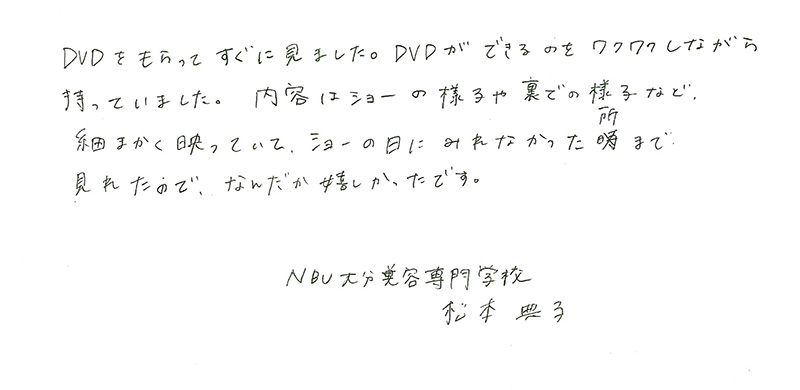 DVDをもらってすぐに見ました。DVDができるのをワクワクしながら
持っていました。内容はショーの様子や裏での様子など、
細まかく映っていて、ショーの日にみれなかった所まで
見れたので、なんだか嬉しかったです。
NBU大分美容専門学校
松本 典子